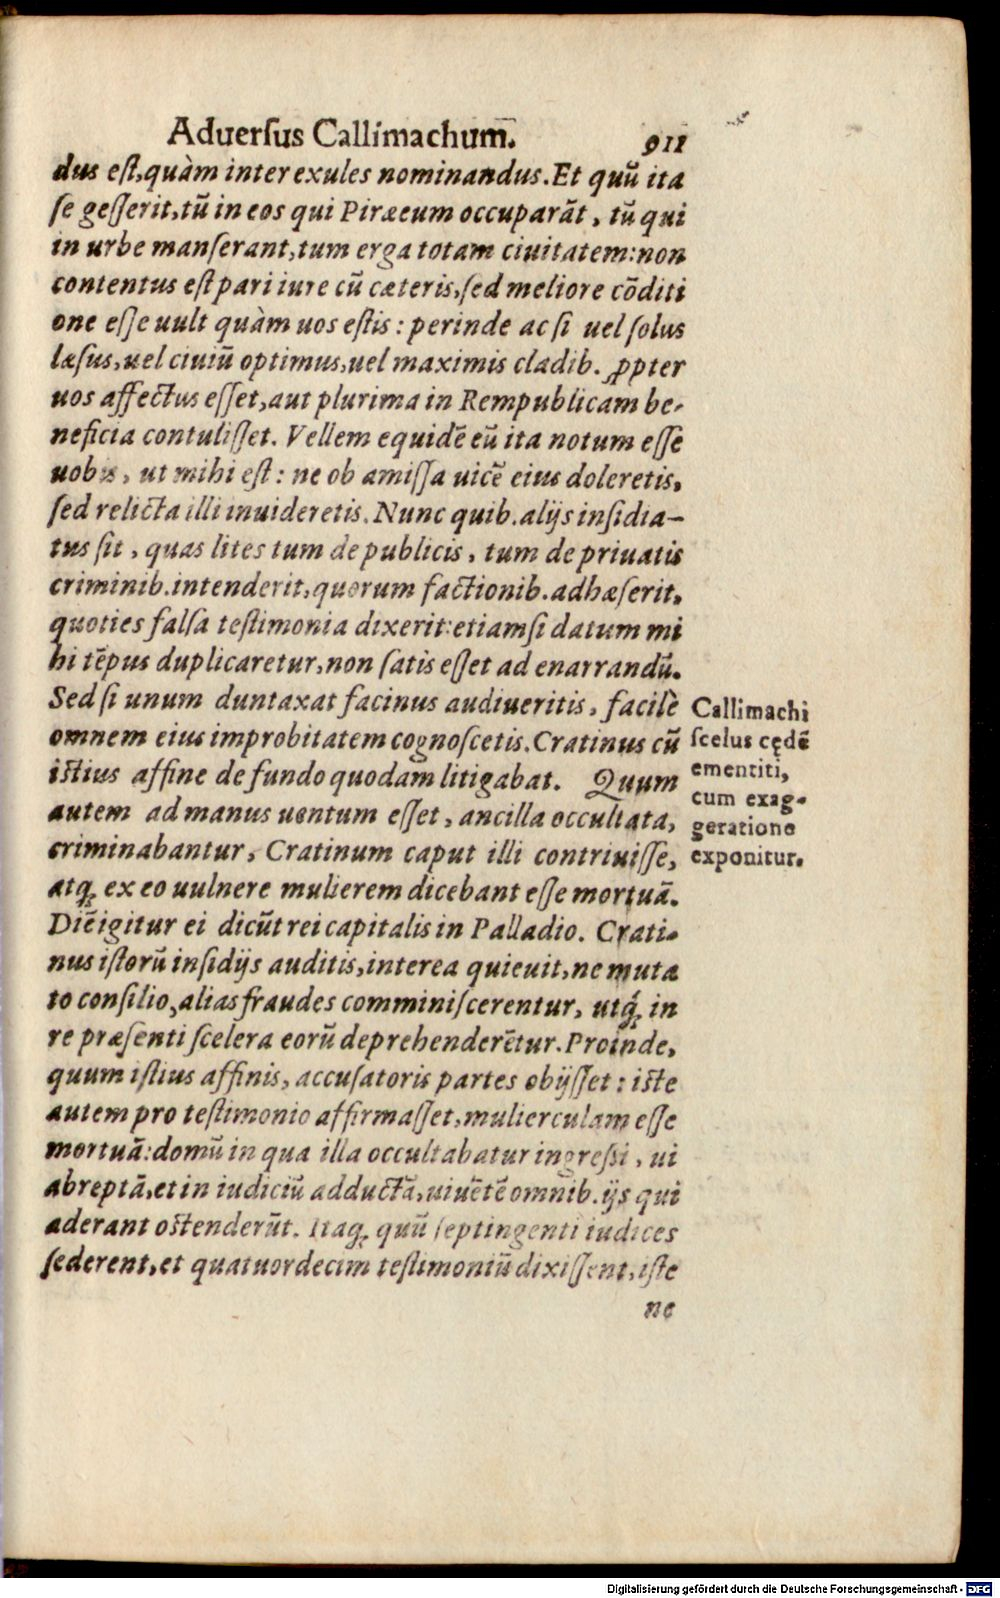 Aduerſus Callimachum. 911
dus eſt, quàm inter exules nominandus. Et quū ita
ſe geſſerit, tū in eos qui Piræeum occuparāt, tū qui
in urbe manſerant, tum erga totam ciuitatem: non
contentus eſt pari iure cū cæteris, ſed meliore cōditi
one eſſe uult quàm uos eſtis: perinde ac ſi uel ſolus
læſus, uel ciuiū optimus, uel maximis cladib. ꝓpter
uos affectus eſſet, aut plurima in Rempublicam be-
neficia contuliſſet. Vellem equidē eū ita notum eſſe
uobis, ut mihi eſt: ne ob amiſſa uicē eius doleretis,
ſed relicta illi inuideretis. Nunc quib. alijs inſidia-
tus ſit, quas lites tum de publicis, tum de priuatis
criminib. intenderit, quorum factionib. adhæſerit,
quoties falſa teſtimonia dixerit: etiamſi datum mi
hi tēpus duplicaretur, non ſatis eſſet ad enarrandū.
Sed ſi unum duntaxat facinus audiueritis, facilè
omnem eius improbitatem cognoſcetis. Cratinus cū
iſtius affine de fundo quodam litigabat. Quum
autem ad manus uentum eſſet, ancilla occultata,
criminabantur, Cratinum caput illi contriuiſſe,
atqꝫ ex eo uulnere mulierem dicebant eſſe mortuā.
Diē igitur ei dicūt rei capitalis in Palladio. Crati-
nus iſtorū inſidijs auditis, interea quieuit, ne muta
to conſilio, alias fraudes comminiſcerentur, utqꝫ in
re præſenti ſcelera eorū deprehenderētur. Proinde,
quum iſtius affinis, accuſatoris partes obijſſet: iſte
autem pro teſtimonio affirmaſſet, mulierculam eſſe
mortuā: domū in qua illa occultabatur ingreſsi, ui
abreptā, et in iudiciū adductā, uiuētē omnib. ijs qui
aderant oſtenderūt. Itaqꝫ quū ſeptingenti iudices
ſederent, et quatuordecim teſtimoniū dixiſſent, iſte
ne
Callimachi
ſcelus cędē
ementiti,
cum exag-
geratione
exponitur.
Digitalisierung gefördert durch die Deutsche Forschungsgemeinschaft - DFG